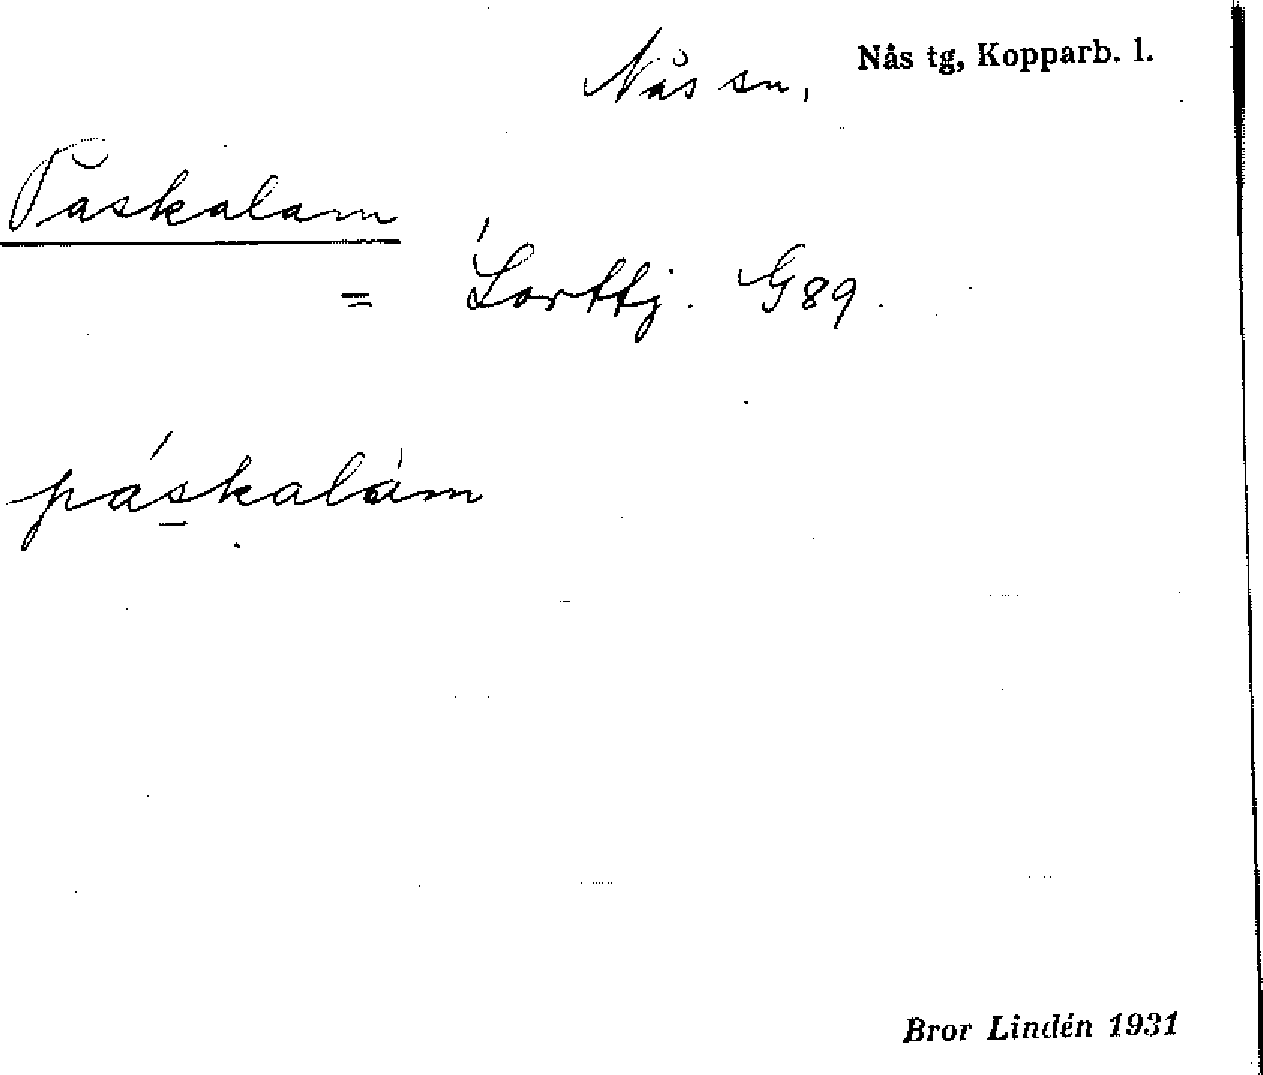 Nås sn, Nås tg, Kopparb. l.
Påskalam
= Lorttj. G 89.
páskalám
Bror Lindén 1931